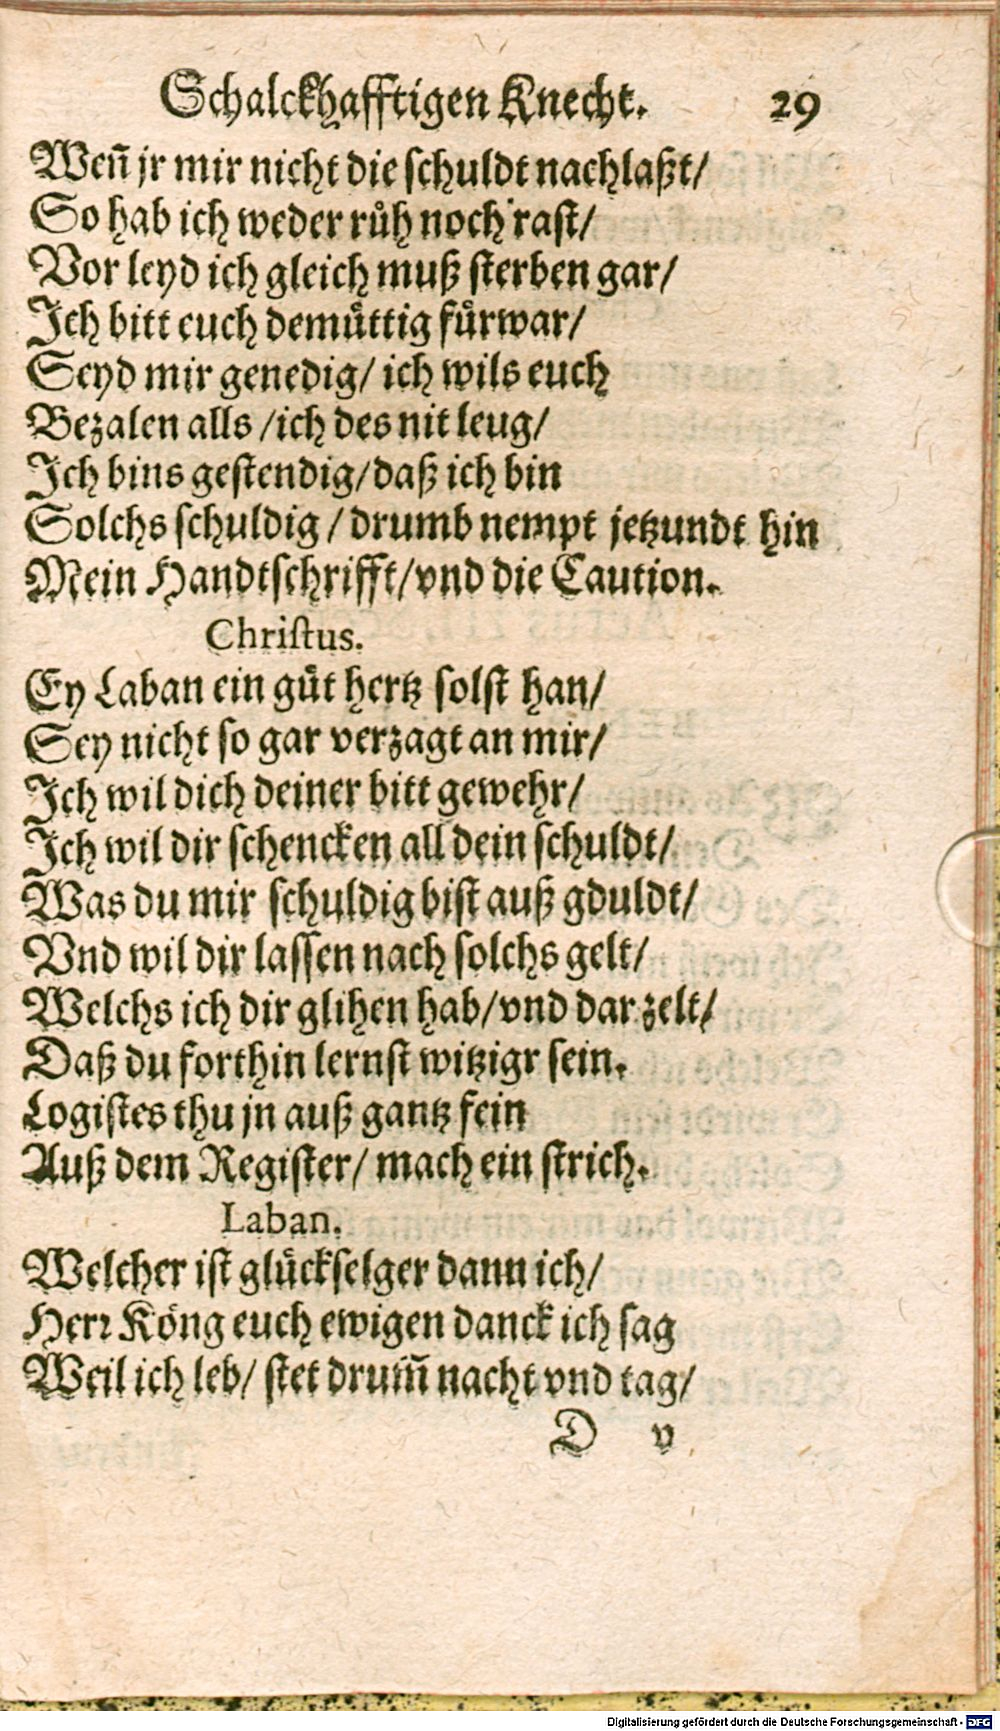 Schalckhafftigen Knecht. 29
Weñ jr mir nicht die schuldt nachlaßt/
So hab ich weder růh noch rast/
Vor leyd ich gleich muß sterben gar/
Ich bitt euch demüttig fürwar/
Seyd mir genedig/ ich wils euch
Bezalen alls /ich des nit leug/
Ich bins gestendig/daß ich bin
Solchs schuldig / drumb nempt jetzundt hin
Mein Handtschrifft/vnd die Caution.
Christus.
Ey Laban ein gůt hertz solst han/
Sey nicht so gar verzagt an mir/
Ich wil dich deiner bitt gewehr/
Ich wil dir schencken all dein schuldt/
Was du mir schuldig bist auß gduldt/
Vnd wil dir lassen nach solchs gelt/
Welchs ich dir glihen hab/vnd dar zelt/
Daß du forthin lernst witzigr sein.
Logistes thu jn auß gantz fein
Auß dem Register/ mach ein strich.
Laban.
Welcher ist glückselger dann ich/
Herr Köng euch ewigen danck ich sag
Weil ich leb/ stet drum̃ nacht vnd tag/
D v
Digitalisierung gefördert durch die Deutsche Forschungsgemeinschaft - DFG